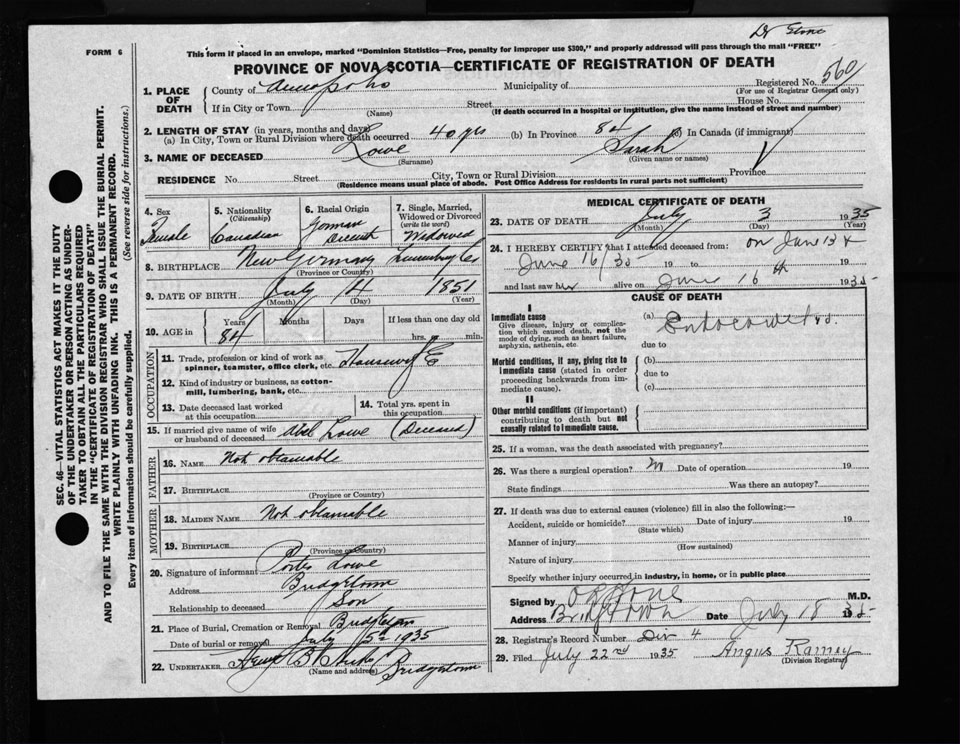 Dr Stone
FORM 6
This form if placed in an envelope, marked "Dominion Statistics—Free, penalty for improper use $300," and properly addressed will pass through the mail "FREE"
PROVINCE OF NOVA SCOTIA—CERTIFICATE OF REGISTRATION OF DEATH
1. PLACE OF DEATH
County of Annapolis Municipality of Registered No. 560
(For use of Registrar General only)
If in City or Town Street House No.
(Name) (If death occurred in a hospital or institution, give the name instead of street and number)
2. LENGTH OF STAY (in years, months and days)
(a) In City, Town or Rural Division where death occurred 40 yrs (b) In Province 84 (c) In Canada (if immigrant)
3. NAME OF DECEASED Lowe Sarah
(Surname) (Given name or names)
RESIDENCE No Street City, Town or Rural Division Province
(Residence means usual place of abode. Post Office Address for residents in rural parts not sufficient)
4. Sex Female
5. Nationality (Citizenship) Canadian
6. Racial Origin German Descent
7. Single, Married, Widowed or Divorced (write the word) Widowed
8. BIRTHPLACE New Germany Lunenburg Co
(Province or Country)
9. DATE OF BIRTH July 4 1851
(Month) (Day) (Year)
10. AGE in Years Months Days If less than one day old
84 hrs. min.
OCCUPATION
11. Trade, profession or kind of work as spinner, teamster, office clerk, etc.
12. Kind of industry or business, as cotton-mill, lumbering, bank, etc.
13. Date deceased last worked at this occupation
14. Total yrs. spent in this occupation
15. If married give name of wife or husband of deceased Abel Lowe (Deceased)
FATHER
16. NAME Not obtainable
17. BIRTHPLACE
(Province or Country)
MOTHER
18. MAIDEN NAME Not obtainable
19. BIRTHPLACE
(Province or Country)
20. Signature of informant Porter Lowe
Address Bridgetown
Relationship to deceased Son
21. Place of Burial, Cremation or Removal Bridgetown
Date of burial or removal July 5th 1935
22. UNDERTAKER Bridgetown
(Name and address)
MEDICAL CERTIFICATE OF DEATH
23. DATE OF DEATH July 3 1935
(Month) (Day) (Year)
24. I HEREBY CERTIFY that I attended deceased from: on June 13 &
June 16/35 19 to 19
and last saw her alive on June 16th 1935
CAUSE OF DEATH
I
Immediate cause
Give disease, injury or complication which caused death, not the mode of dying, such as heart failure, asphyxia, asthenia, etc.
(a)
due to
Morbid conditions, if any, giving rise to immediate cause (stated in order proceeding backwards from immediate cause).
(b)
due to
(c)
II
Other morbid conditions (if important) contributing to death but not causally related to immediate cause.
25. If a woman, was the death associated with pregnancy?
26. Was there a surgical operation? Date of operation 19
State findings Was there an autopsy?
27. If death was due to external causes (violence) fill in also the following:—
Accident, suicide or homicide? Date of injury 19
(State which)
Manner of injury
(How sustained)
Nature of injury
Specify whether injury occurred in industry, in home, or in public place
Signed by M.D.
Address Bridgetown Date July 18 35
28. Registrar's Record Number Div 4
29. Filed July 22nd 1935 Angus Ramey
(Division Registrar)
SEC. 46—VITAL STATISTICS ACT MAKES IT THE DUTY
OF THE UNDERTAKER OR PERSON ACTING AS UNDER-
TAKER TO OBTAIN ALL THE PARTICULARS REQUIRED
IN THE "CERTIFICATE OF REGISTRATION OF DEATH"
AND TO FILE THE SAME WITH THE DIVISION REGISTRAR WHO SHALL ISSUE THE BURIAL PERMIT.
WRITE PLAINLY WITH UNFADING INK. THIS IS A PERMANENT RECORD.
(See reverse side for instructions.)
Every item of information should be carefully supplied.